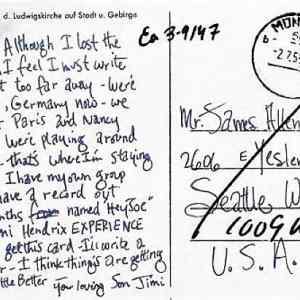 d. Ludwigskirche auf Stadt u. Gebirge
Although I lost the
I feel I must write
t too far away - we're
, Germany now - we
Paris and Nancy
We're playing around
- that's where I'm staying
I have my own group
have a record out
nths named "Hey Joe"
mi Hendrix EXPERIENCE
get this card - I'll write a
r - I think things are getting
ttle Better
Your loving Son Jimi
Ea 3-9/47
MÜN
2.7.5
Mr. James Allen
2606 E Yesler
Seattle W
100G W
U.S.A.